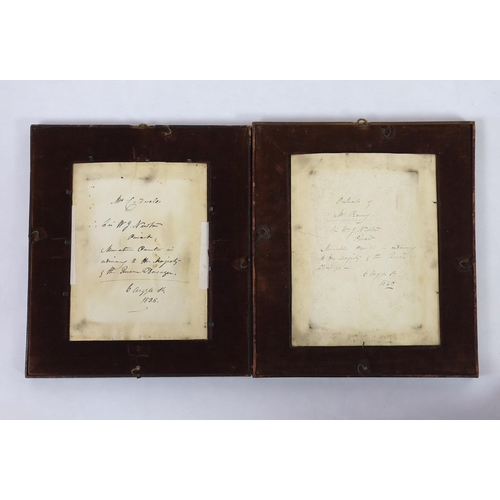 Mrs
Sir W J Newton
Pinxit
Miniature Painter in
ordinary to Her Majesty
& the Queen Dowager.
6 Argyll St.
1838.
Portrait of
Mr
Sir W J Newton
Pinxit
Miniature Painter in ordinary
to Her Majesty & the Queen
Dowager
6 Argyll St